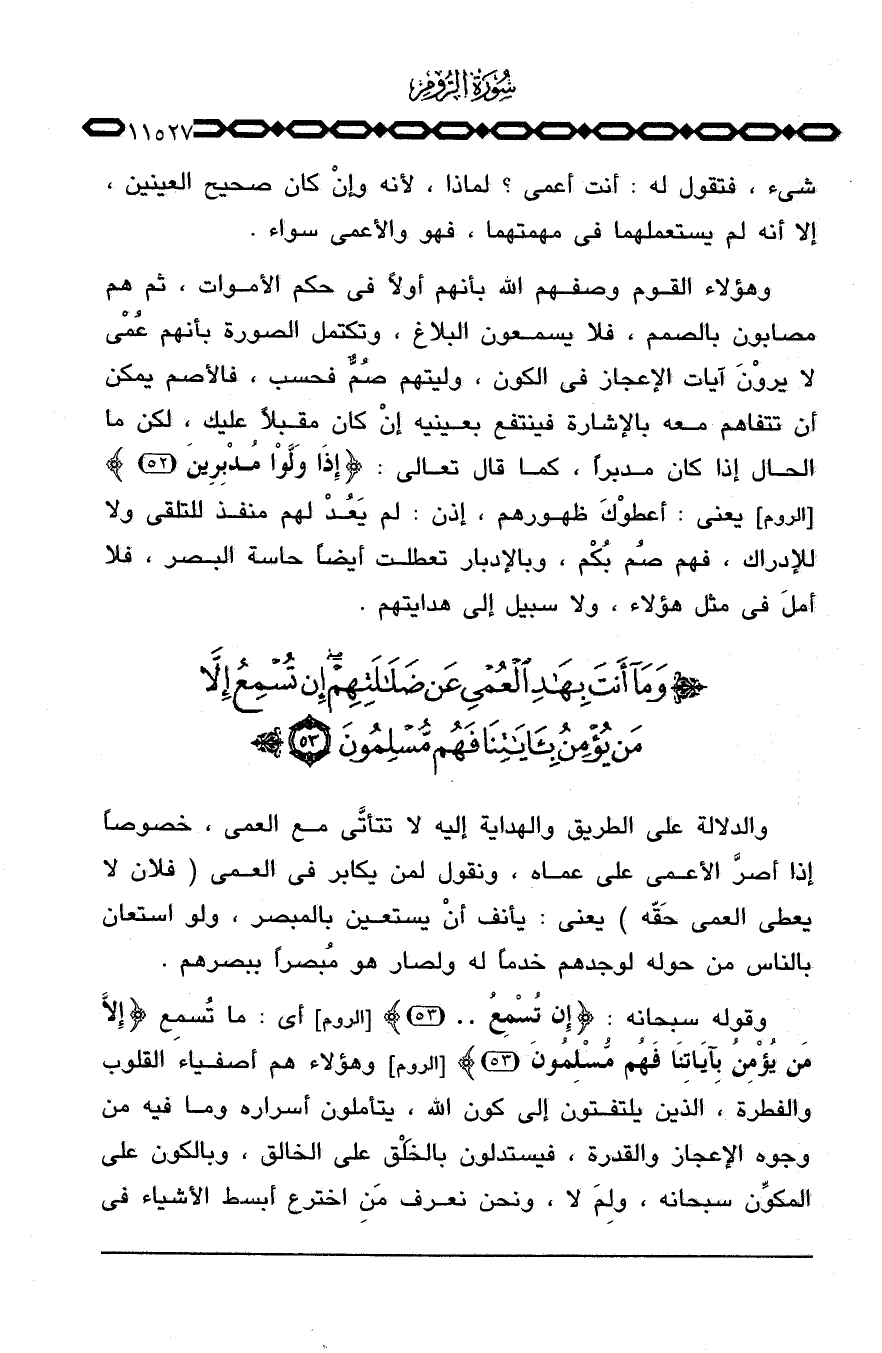 سُورَةُ الرُّومِ
١١٥٢٧
شىء ، فتقول له : أنت أعمى ؟ لماذا ، لأنه وإنْ كان صحيح العينين ،
إلا أنه لم يستعملهما فى مهمتهما ، فهو والأعمى سواء .
وهؤلاء القوم وصفهم الله بأنهم أولاً فى حكم الأموات ، ثم هم
مصابون بالصمم ، فلا يسمعون البلاغ ، وتكتمل الصورة بأنهم عُمْى
لا يروْنَ آيات الإعجاز فى الكون ، وليتهم صُمٌّ فحسب ، فالأصم يمكن
أن تتفاهم معه بالإشارة فينتفع بعينيه إنْ كان مقبلاً عليك ، لكن ما
الحال إذا كان مدبراً ، كما قال تعالى : ﴿إِذَا وَلَّوْا مُدْبِرِينَ (٥٢)﴾
[الروم] يعنى : أعطوْكَ ظهورهم ، إذن : لم يَعُدْ لهم منفذ للتلقى ولا
للإدراك ، فهم صُم بُكْم ، وبالإدبار تعطلت أيضاً حاسة البصر ، فلا
أملَ فى مثل هؤلاء ، ولا سبيل إلى هدايتهم .
﴿وَمَآ أَنتَ بِهَٰدِ ٱلْعُمْىِ عَن ضَلَٰلَتِهِمْ ۖ إِن تُسْمِعُ إِلَّا
مَن يُؤْمِنُ بِـَٔايَٰتِنَا فَهُم مُّسْلِمُونَ ٥٣﴾
والدلالة على الطريق والهداية إليه لا تتأتَّى مع العمى ، خصوصاً
إذا أصرَّ الأعمى على عماه ، ونقول لمن يكابر فى العمى ( فلان لا
يعطى العمى حَقّه ) يعنى : يأنف أنْ يستعين بالمبصر ، ولو استعان
بالناس من حوله لوجدهم خدماً له ولصار هو مُبصراً ببصرهم .
وقوله سبحانه : ﴿إِن تُسْمِعُ .. (٥٣)﴾ [الروم] أى : ما تُسمِع ﴿إِلاَّ
مَن يُؤْمِنُ بِآيَاتِنَا فَهُم مُّسْلِمُونَ (٥٣)﴾ [الروم] وهؤلاء هم أصفياء القلوب
والفطرة ، الذين يلتفتون إلى كون الله ، يتأملون أسراره وما فيه من
وجوه الإعجاز والقدرة ، فيستدلون بالخَلْق على الخالق ، وبالكون على
المكوِّن سبحانه ، ولِمَ لا ، ونحن نعرف مَنِ اخترع أبسط الأشياء فى